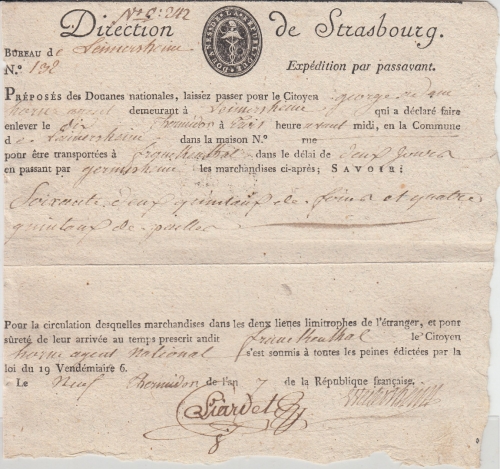 Nº 8: 242
Direction de Strasbourg.
DOUANES DE LA REPUBLIQUE
BUREAU de Leimersheim
N.º 132
Expédition par passavant.
PRÉPOSÉS des Douanes nationales, laissez passer pour le Citoyen george
horne demeurant à Leimersheim qui a déclaré faire
enlever le dix thermidor à six heure avant midi, en la Commune
de Leimersheim dans la maison N.º rue
pour être transportées à frankenthal dans le délai de deux jours
en passant par germersheim les marchandises ci-après; SAVOIR:
Soixante deux quintaux de foins et quatre
quintaux de pailles
Pour la circulation desquelles marchandises dans les deux lieues limitrophes de l'étranger, et pour
sûreté de leur arrivée au temps prescrit audit frankenthal le Citoyen
horne agent national s'est soumis à toutes les peines édictées par la
loi du 19 Vendémiaire 6.
Le Neuf thermidor de l'an 7 de la République française.
Liardet